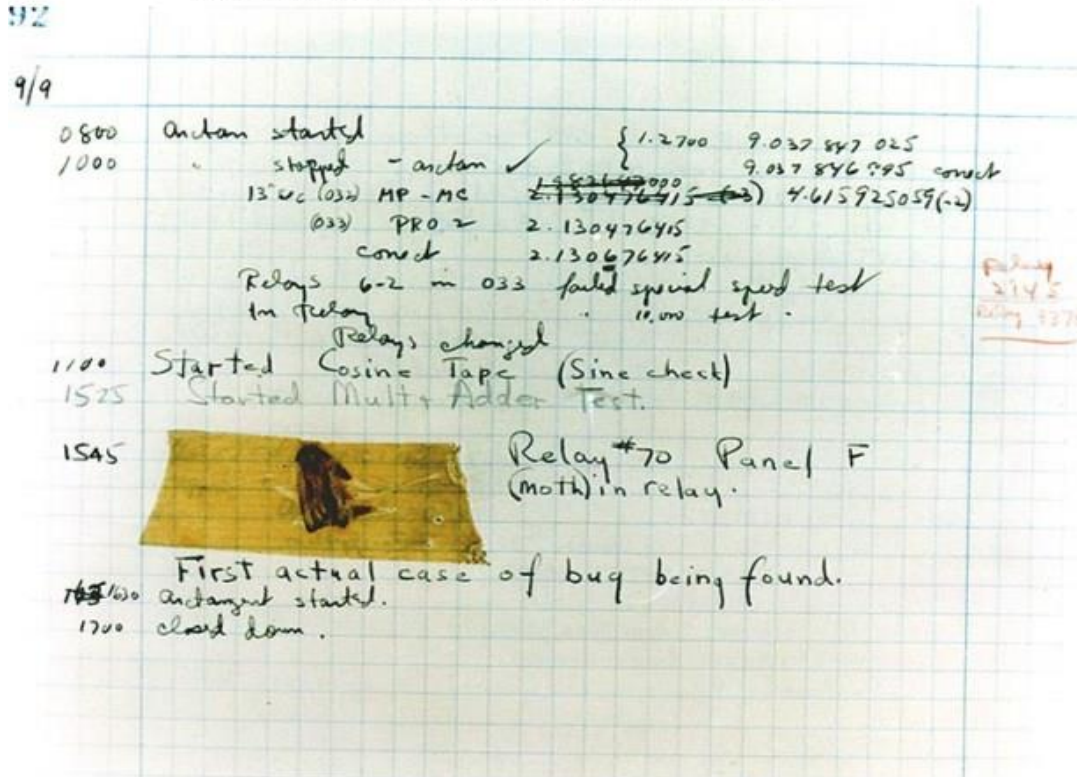 92
9/9
0800 Antan started { 1.2700 9.037 847 025
1000 " stopped - antan ✓ 9.037 846 995 conect
13" uc (032) MP - MC 1.982647000 2.130476415 (-3) 4.615925059(-2)
(033) PRO 2 2.130476415
conect 2.130676415
Relays 6-2 in 033 failed special speed test
In Relay " 10.000 test .
Relays changed
1100 Started Cosine Tape (Sine check)
1525 Started Mult + Adder Test.
1545 Relay #70 Panel F
(moth) in relay.
First actual case of bug being found.
1630 Antangent started.
1700 closed down.
Relay
2145
Relay 337